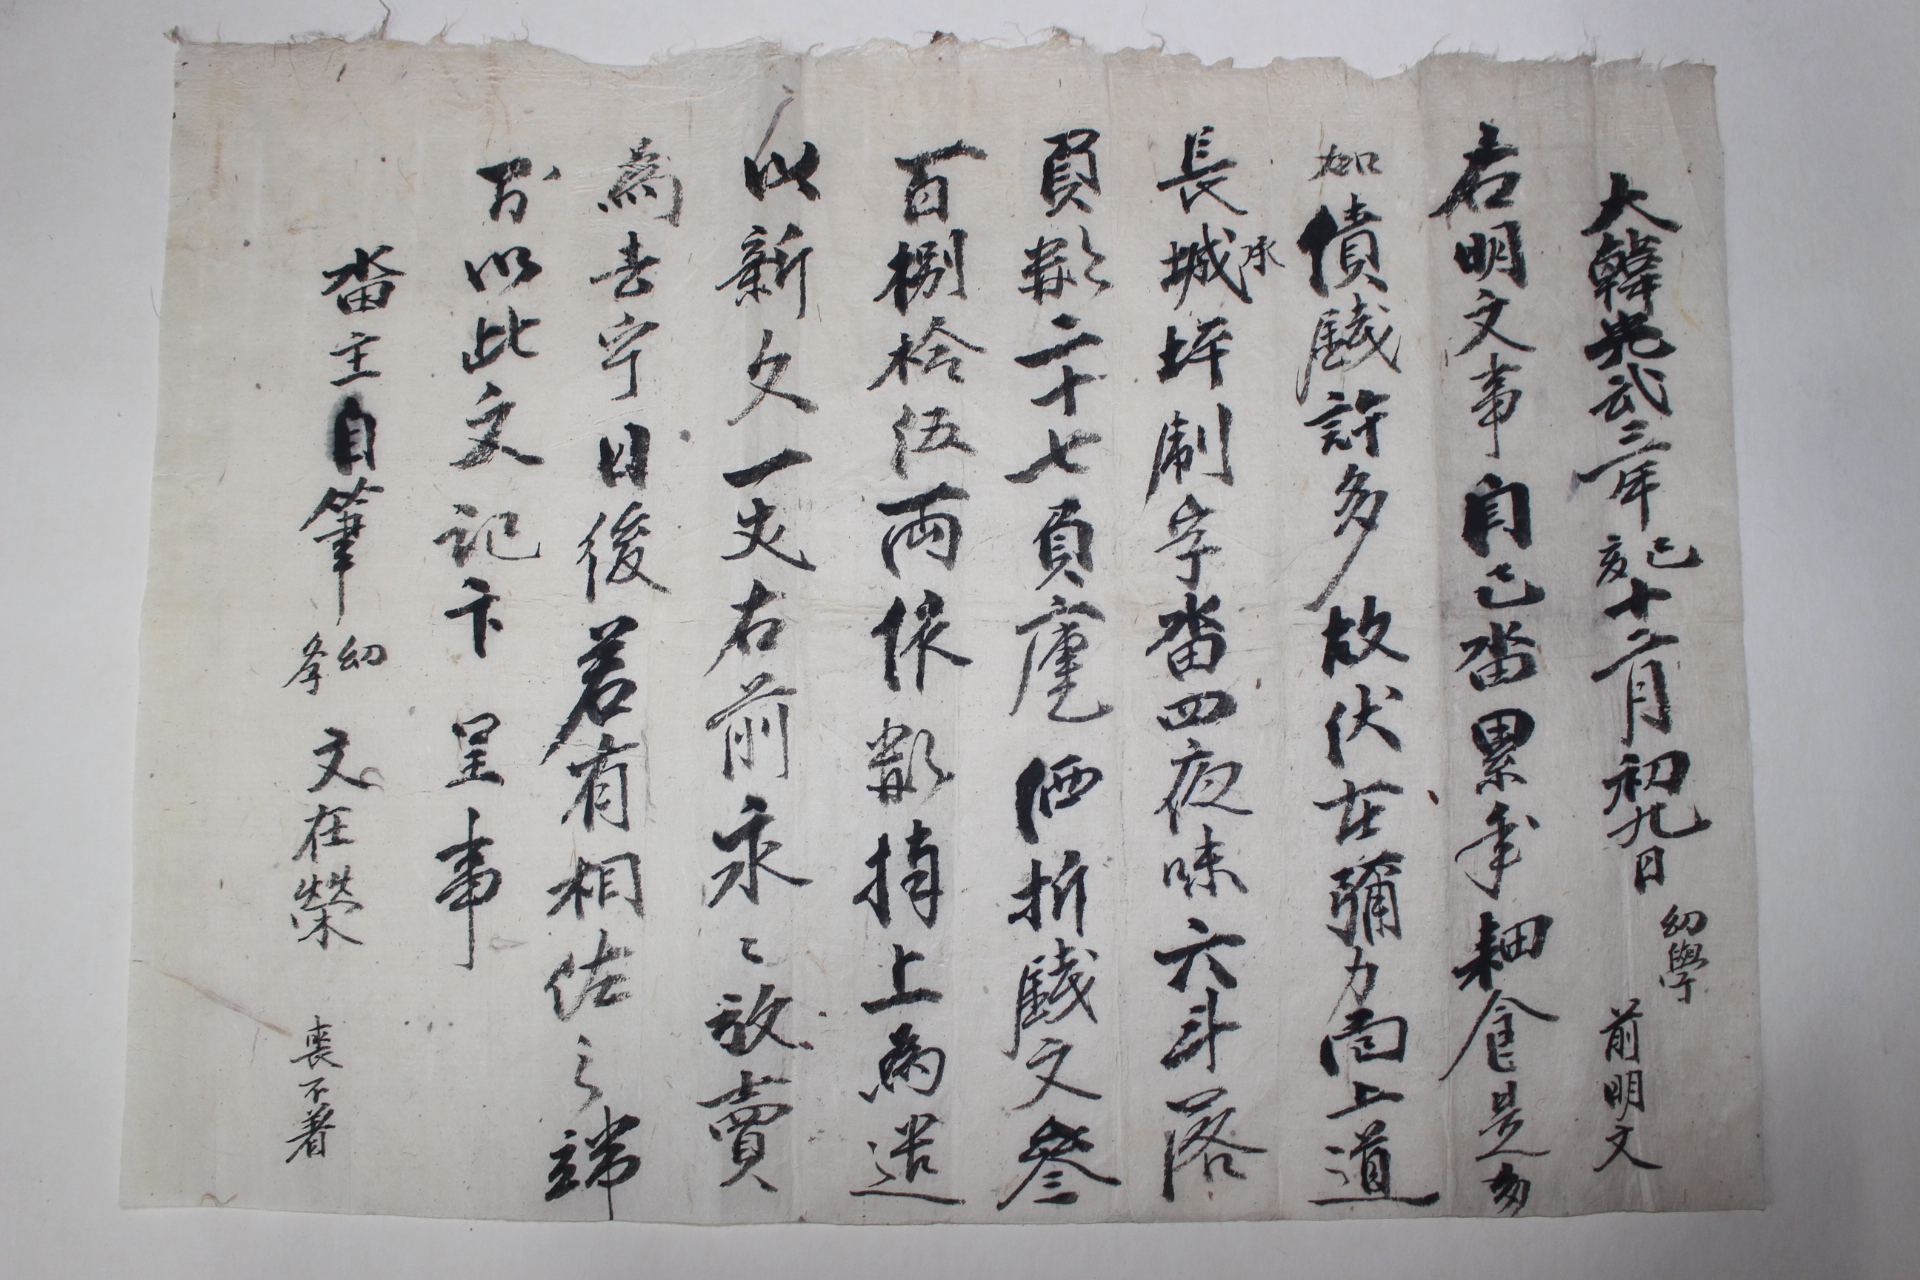 大韓光武三年己亥十二月初九日 幼學 前明文
右明文事自己畓累年耕食是多
如債錢許多故伏在彌力面上道
長城坪承制字畓四夜味六斗落
員數二十七負庫 価折錢文叁
百捌拾伍兩依數捧上為遣
以新久一丈右前永〻放賣
為去乎日後若有相佐之端
則以此文記卞呈事
畓主自筆 幼學 文在榮 喪不着